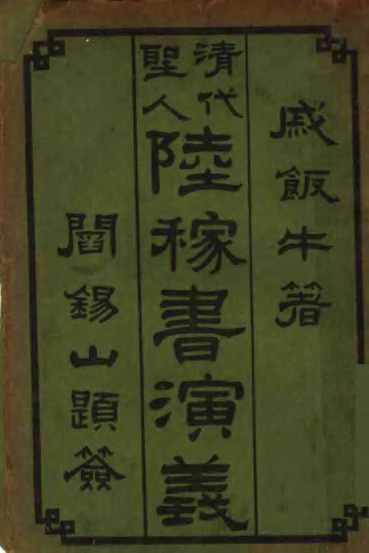 戚飯牛著
清代聖人
陸稼書演義
閻錫山題簽